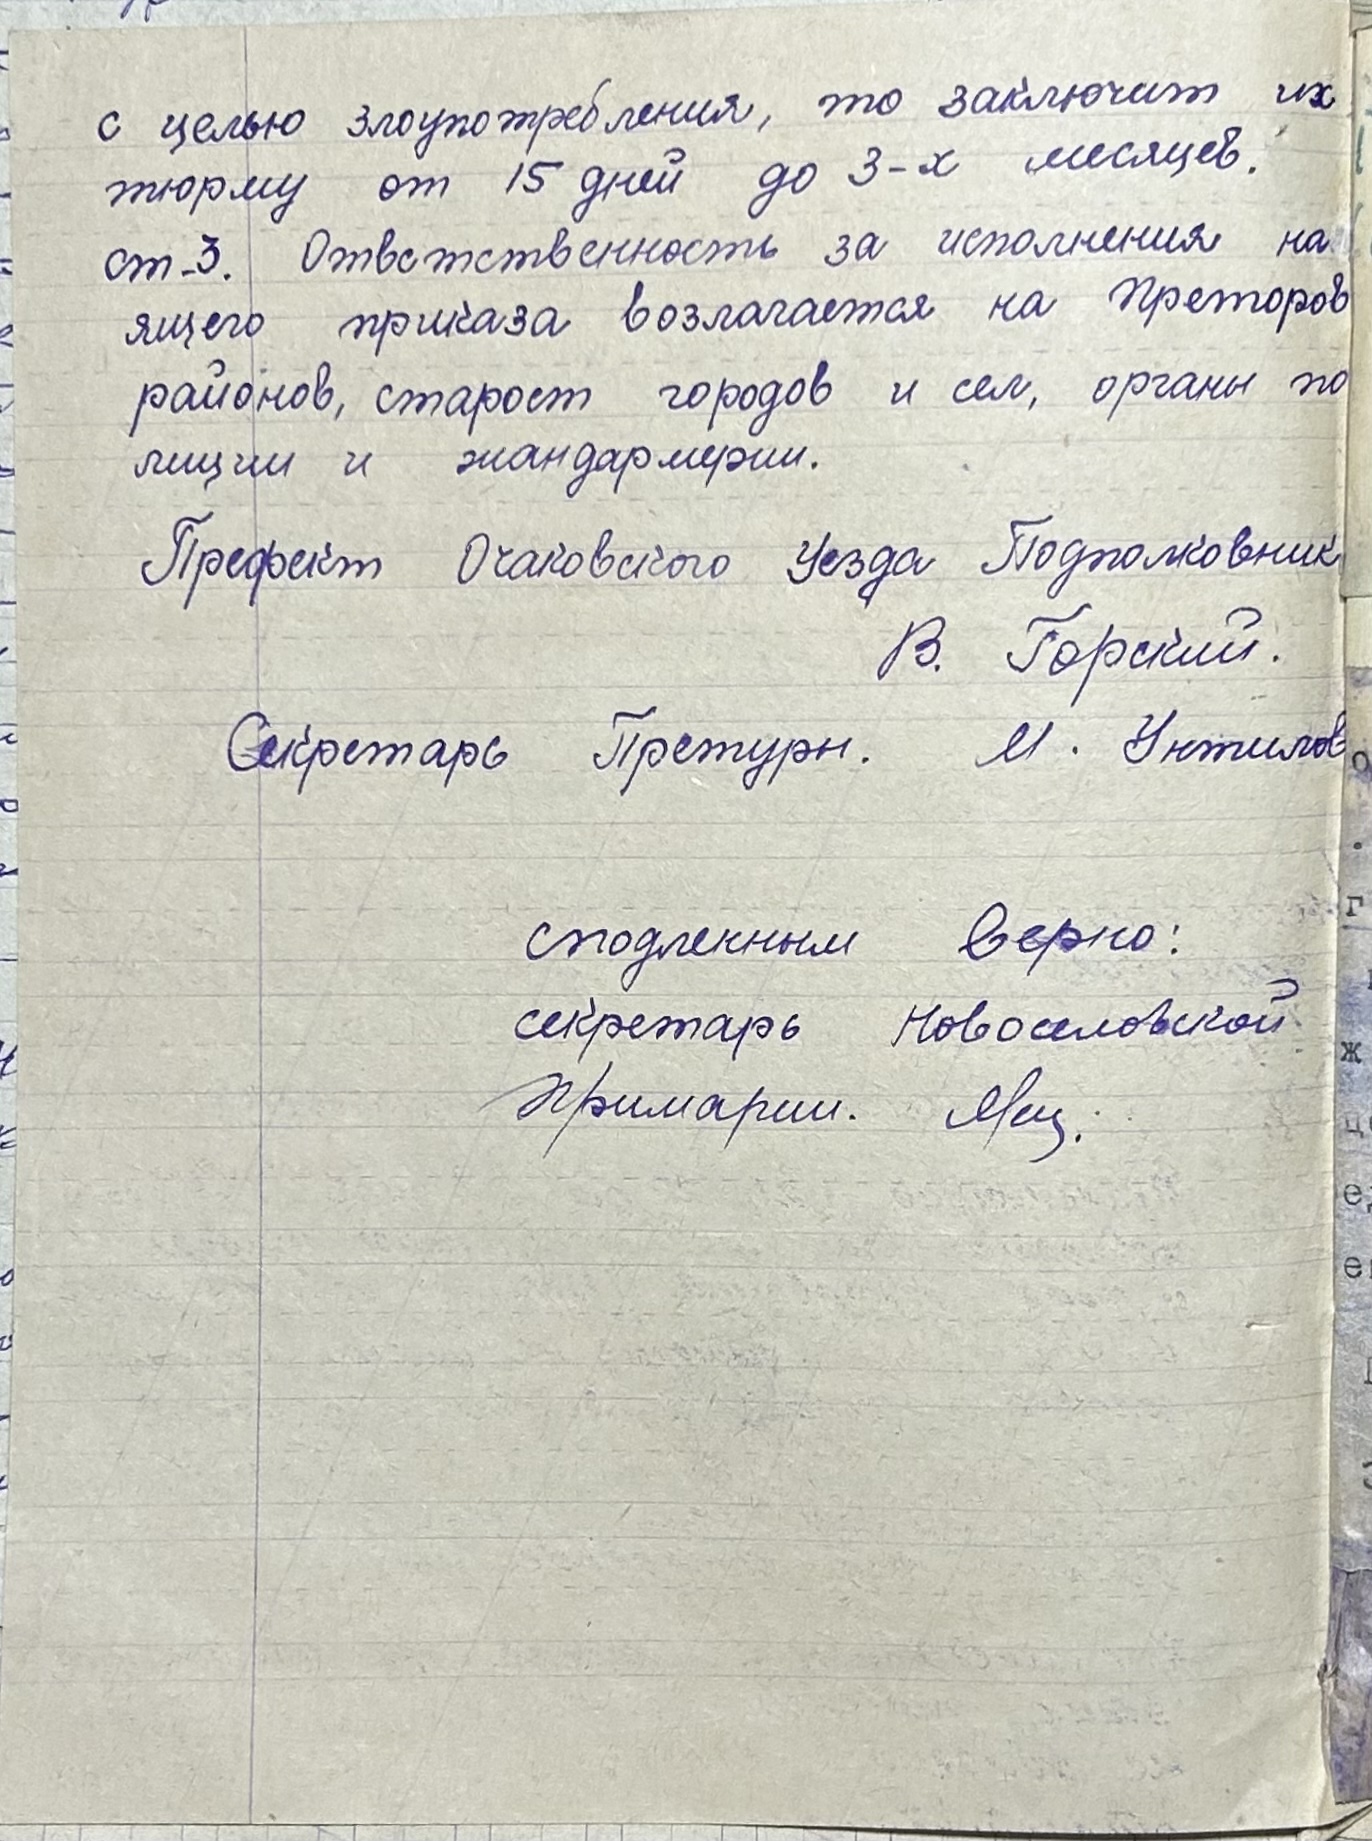 с целью злоупотребления, то заключит их
тюрму от 15 дней до 3-х месяцев.
ст-3. Ответственность за исполнения на
ящего приказа возлагается на Преторов
районов, старост городов и сел, органы по
лиции и жандармерии.
Префект Очаковского Уезда Подполковник
В. Горский.
Секретарь Претуры. М. Унтилов
сподленным Верно:
секретарь Новоселовской
Примарии.